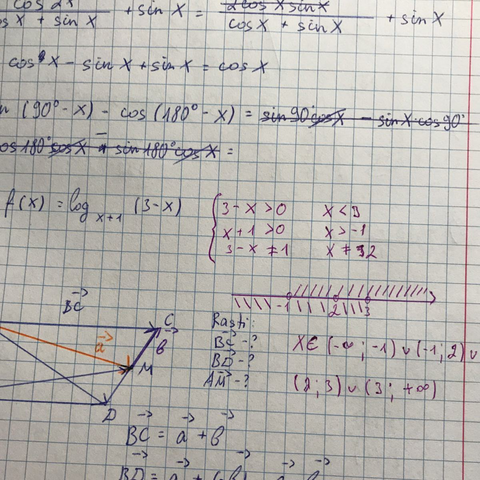 cos 2X / cos X + sin X + sin X = 2cos X sin X / cos X + sin X + sin X
cos X - sin X + sin X = cos X
(90° - X) - cos (180° - X) = sin 90° cos X - sin X cos 90°
cos 180° cos X + sin 180° cos X =
f(X) = log X+1 (3-X)
3 - X > 0 X < 3
X + 1 > 0 X > -1
3 - X ≠ 1 X ≠ 2
-1 2 3
BC→
a→
C
b→
M
D
Rasti:
BC→ - ?
BD→ - ?
AM→ - ?
X ∈ (-∞; -1) ∪ (-1; 2) ∪
(2; 3) ∪ (3; +∞)
BC→ = a→ + b→
BD→ = a→ + (-b→)